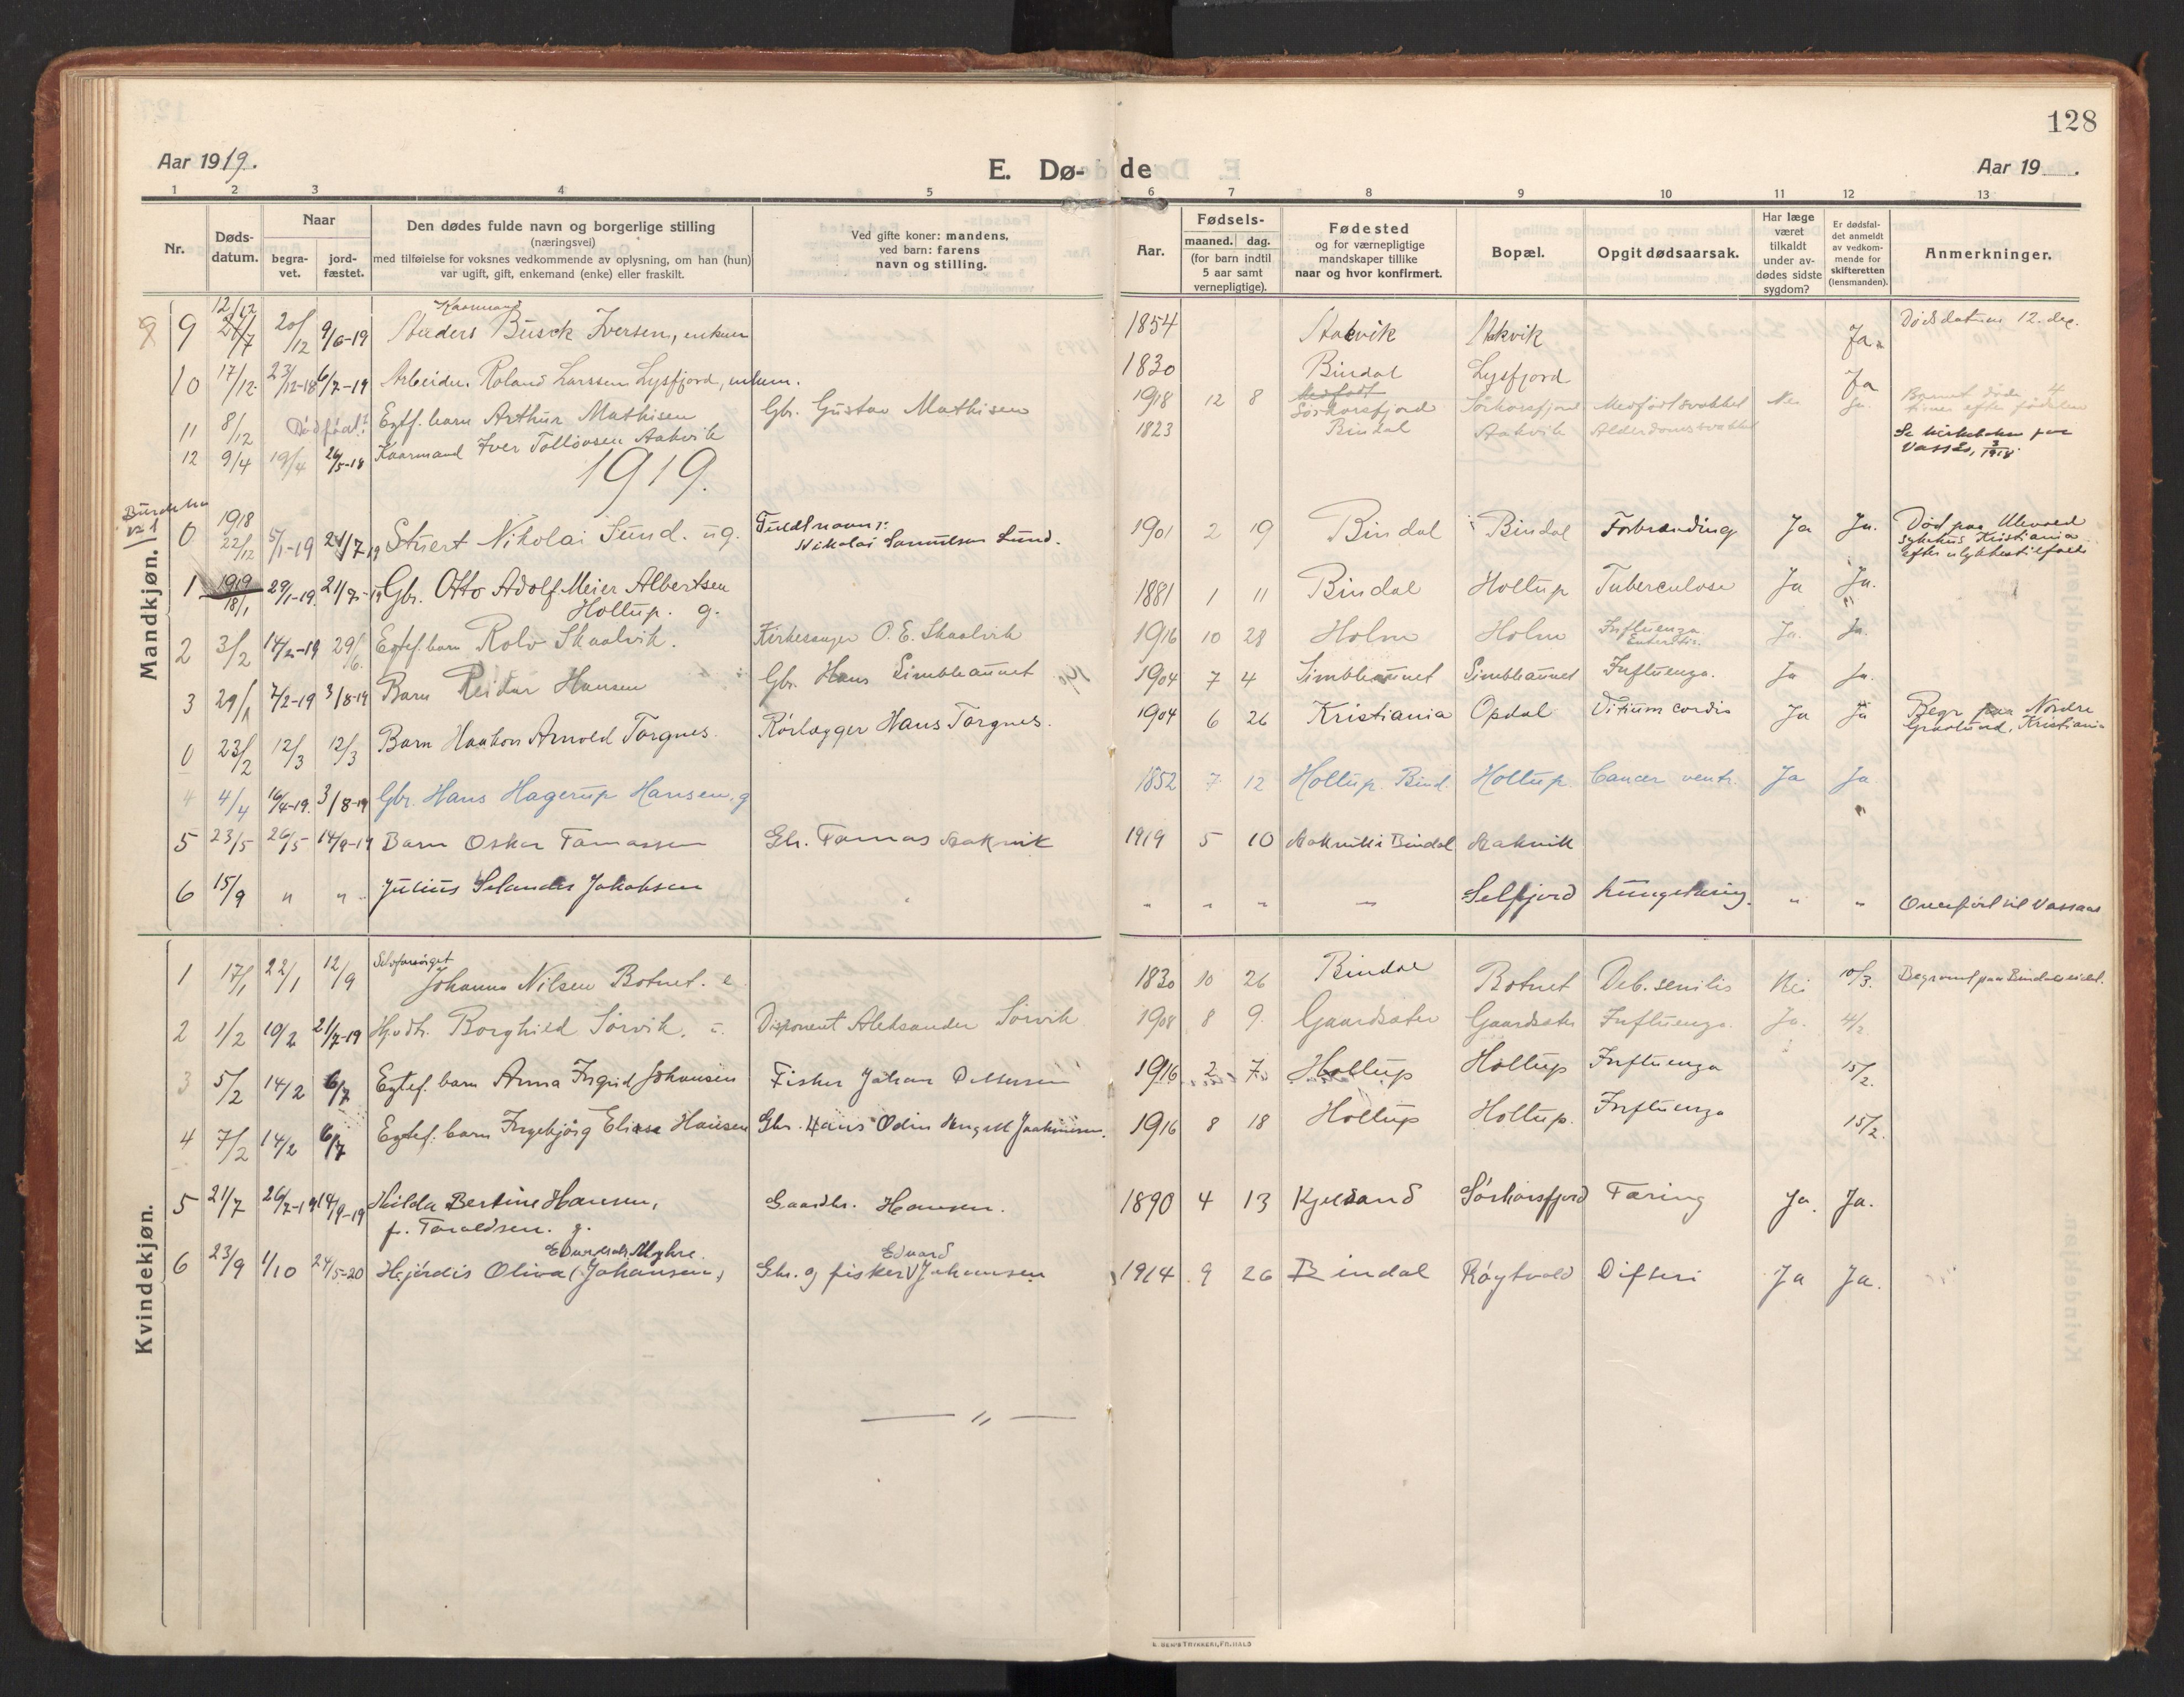 128
Aar 1919.
E. Dø- de
Aar 19 .
1 2 3 4 5 6 7 8 9 10 11 12 13
Nr.
Døds-
datum.
Naar
begra-
vet.
jord-
fæstet.
Den dødes fulde navn og borgerlige stilling
(næringsvei)
med tilføielse for voksnes vedkommende av oplysning, om han (hun)
var ugift, gift, enkemand (enke) eller fraskilt.
Ved gifte koner: mandens,
ved barn: farens
navn og stilling.
Aar.
Fødsels-
maaned. dag.
(for barn indtil
5 aar samt
vernepligtige).
Fødested
og for værnepligtige
mandskaper tillike
naar og hvor konfirmert.
Bopæl.
Opgit dødsaarsak.
Har læge
været
tilkaldt
under av-
dødes sidste
sygdom?
Er dødsfal-
det anmeldt
av vedkom-
mende for
skifteretten
(lensmanden).
Anmerkninger.
Mandkjøn.
9 9 12/12 20/12 9/6-19 Kaarmand Anders Busck Iversen, enkem 1854 Aakvik Aakvik Ja. Dødsdatum 12. dec.
10 17/12 23/12-18 6/7-19 Arbeider. Roland Larssen Lysfjord, enkem. 1830 Bindal Lysfjord Ja
11 8/12 Dødfødt? Egtf. barn Arthur Mathisen Gbr. Gustav Mathisen 1918 12 8 Sørhorsfjord Sørhorsfjord Medfødt svakhet Nei Ja. Barnet døde 4
timer efter fødselen
12 9/4 19/4 26/5-18 Kaarmand Iver Tolløvsen Aakvik 1823 Bindal Aakvik Alderdomssvakhet Se kirkeboken for
Vassås, 3/1918.
1919.
0 1918 22/12 5/1-19 21/7 19 Stuert Nikolai Sund. ug. Fuldt navn:
Nikolai Samuelsen Sund. 1901 2 19 Bindal Bindal Forbrænding Ja Ja. Død paa Ulevold
sykehus Kristiania
efter ulykkestilfælde
1 1919 18/1 29/1-19. 21/7-19 Gbr. Otto Adolf Meier Albertsen
Holtup. g. 1881 1 11 Bindal Holtup Tuberculose Ja Ja.
2 3/2 14/2-19 29/6. Egtef. barn Rolv Skaalvik. Kirkesanger P. E. Skaalvik 1916 10 28 Holm Holm Influenza
Enteritis. Ja. Ja.
3 29/1 7/2-19 3/8-19 Barn Reidar Hansen Gbr. Hans Simbleaunet 1904 7 4 Simbleaunet Simbleaunet Influenza. Ja Ja.
0 23/2 12/3 12/3 Barn Haakon Arnold Torgnes. Rørlægger Hans Torgnes. 1904 6 26 Kristiania Opdal Vitium cordis Ja Ja Begr paa Nordre
Gravlund, Kristiania
4 4/4 16/4-19. 3/8-19 Gbr. Hans Hagerup Hansen. g 1852 7 12 Holtup. Bind. Holtup. Cancer ventr. Ja Ja.
5 23/5 26/5 14/9-19 Barn Oskar Tomassen Gbr. Tomas Aakvik 1919 5 10 Aakvik i Bindal Aakvik
6 15/9 " " Julius Selander Jakobsen " " " " Selfjord Lungetæring. " " Overført til Vassaas
Kvindekjøn.
1 17/1 22/1 12/9 Selvforsørget
Johanna Nilsen Botnet. e. 1830 10 26 Bindal Botnet Deb. senilis Nei 10/3. Begravet paa Bindalseidet.
2 1/2 10/2 21/7-19 Hjvdtr. Borghild Sørvik. u. Disponent Aleksander Sørvik 1908 8 9. Gaardsæter Gaardsæter Influenza. Ja. 4/2
3 5/2 14/2 6/7 Egtef. barn Anna Ingrid Johansen Fisker Johan 1916 2 7 Holtup Holtup Influenza 15/2.
4 7/2 14/2 6/7 Egtef. barn Ingebjørg Elise Hansen Gbr. Hans Odin 1916 8 18 Holtup Holtup. Influenza 15/2.
5 21/7 26/7-19 14/9-19 Hilda Bertine Hansen,
f. Toraldsen. g. Gaardbr. Hansen. 1890 4 13 Kjelsand Sørhorsfjord Tæring Ja. Ja.
6 23/9 1/10 24/5-20 Hjørdis Oliva (Johansen) Edvardsdtr. Myhre. Gbr. og fisker Edvard Johansen 1914 9 26 Bindal Røytvold Difteri Ja Ja.
— " —